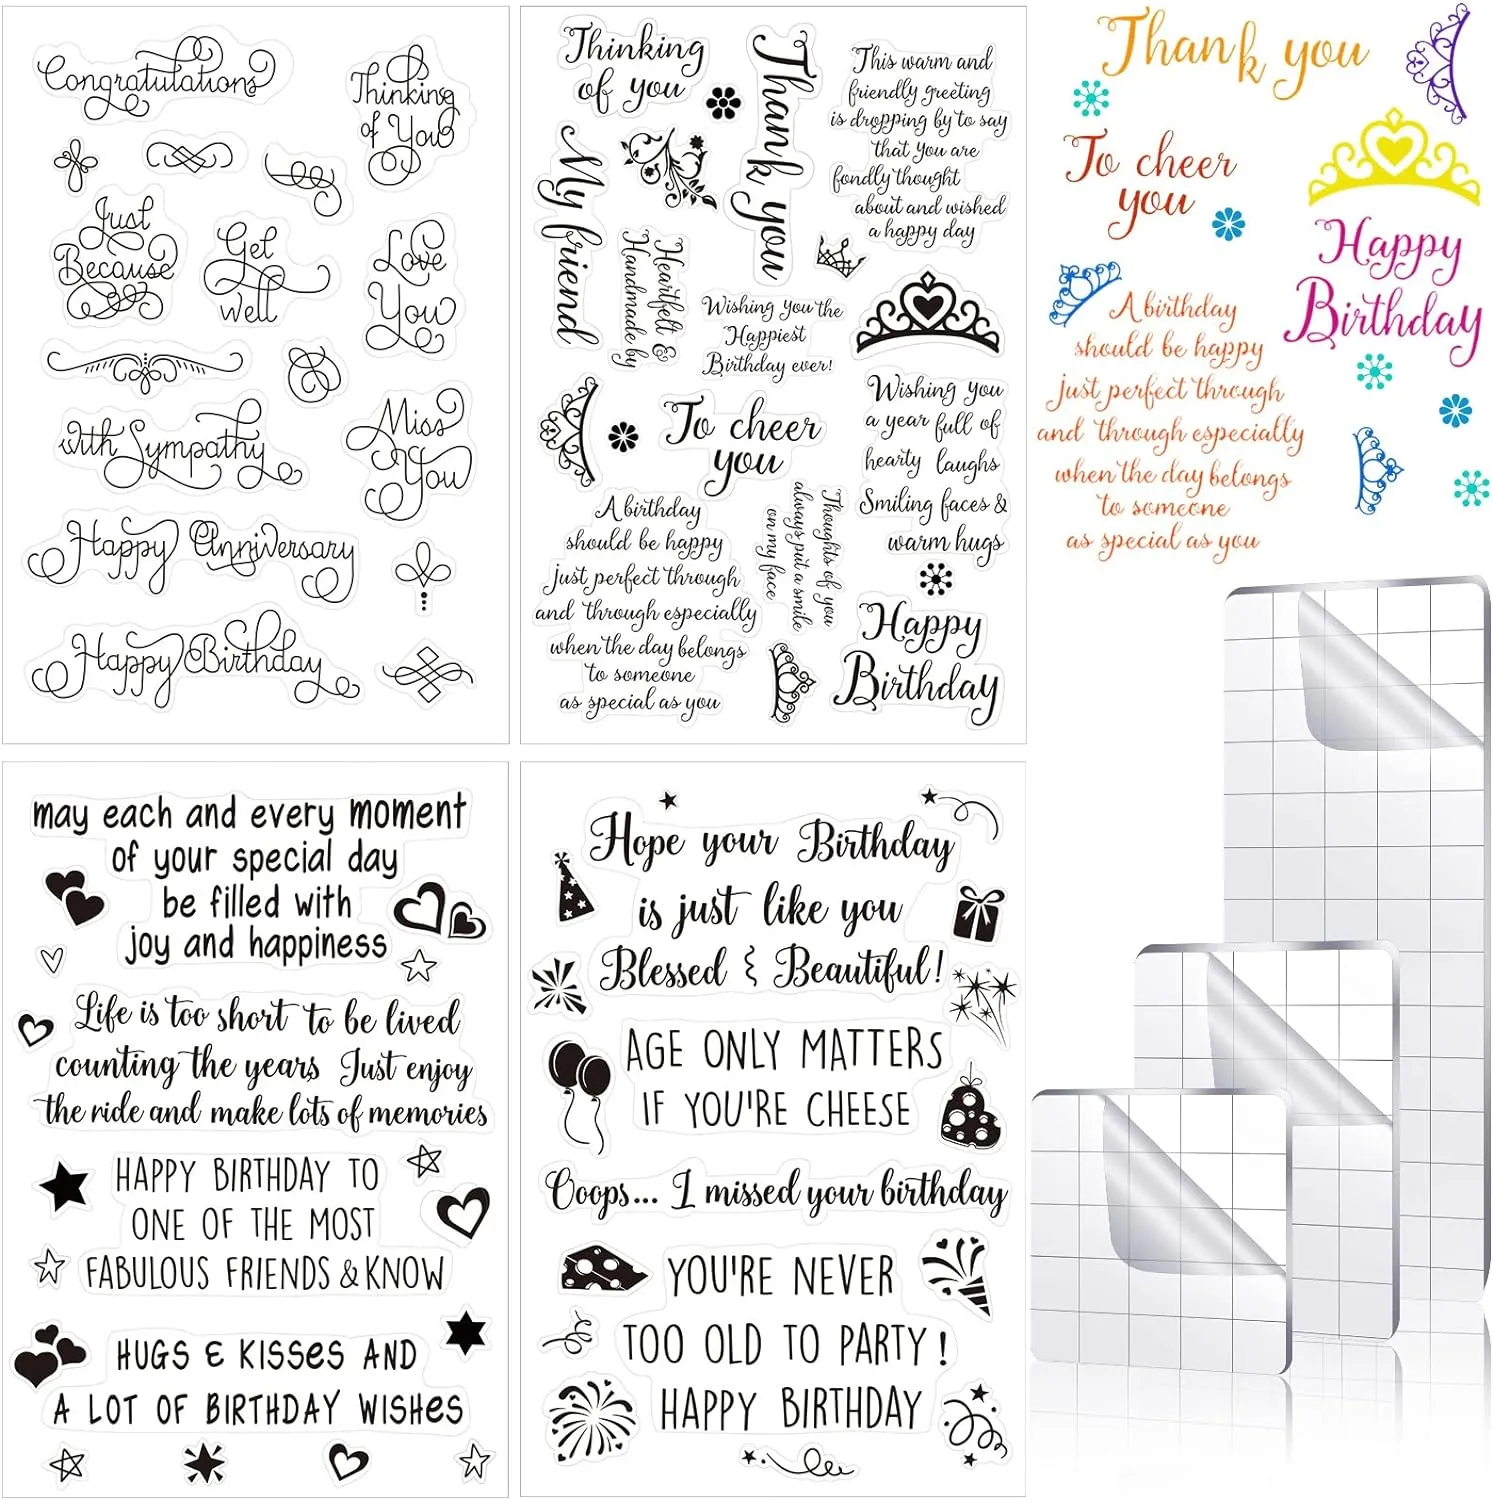 Congratulations
Thinking
of You
Just
Because
Get
well
Love
You
with Sympathy
Miss
You
Happy Anniversary
Happy Birthday
Thinking
of you
Thank you
My friend
This warm and
friendly greeting
is dropping by to say
that you are
fondly thought
about and wished
a happy day
Heartfelt &
Handmade by
Wishing you the
Happiest
Birthday ever!
To cheer
you
Wishing you
a year full of
hearty laughs
Smiling faces &
warm hugs
A birthday
should be happy
just perfect through
and through especially
when the day belongs
to someone
as special as you
Thoughts of you
always put a smile
on my face
Happy
Birthday
Thank you
To cheer
you
Happy
Birthday
A birthday
should be happy
just perfect through
and through especially
when the day belongs
to someone
as special as you
may each and every moment
of your special day
be filled with
joy and happiness
Life is too short to be lived
counting the years, Just enjoy
the ride and make lots of memories
HAPPY BIRTHDAY TO
ONE OF THE MOST
FABULOUS FRIENDS & KNOW
HUGS & KISSES AND
A LOT OF BIRTHDAY WISHES
Hope your Birthday
is just like you
Blessed & Beautiful!
AGE ONLY MATTERS
IF YOU'RE CHEESE
Ooops... I missed your birthday
YOU'RE NEVER
TOO OLD TO PARTY!
HAPPY BIRTHDAY